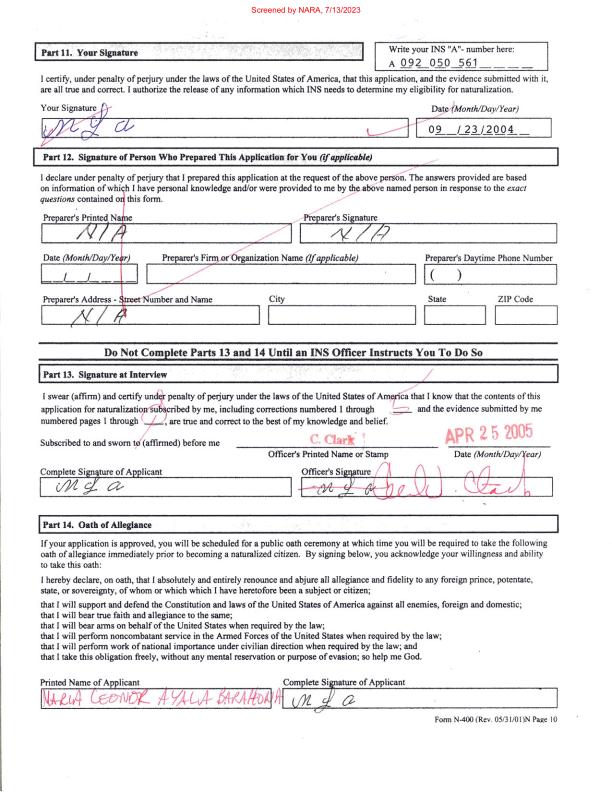 Screened by NARA, 7/13/2023
Part 11. Your Signature
Write your INS "A"- number here:
A 092 050 561
I certify, under penalty of perjury under the laws of the United States of America, that this application, and the evidence submitted with it,
are all true and correct. I authorize the release of any information which INS needs to determine my eligibility for naturalization.
Your Signature Date (Month/Day/Year)
M L a 09 /23/2004
Part 12. Signature of Person Who Prepared This Application for You (if applicable)
I declare under penalty of perjury that I prepared this application at the request of the above person. The answers provided are based
on information of which I have personal knowledge and/or were provided to me by the above named person in response to the exact
questions contained on this form.
Preparer's Printed Name Preparer's Signature
N/A N/A
Date (Month/Day/Year) Preparer's Firm or Organization Name (If applicable) Preparer's Daytime Phone Number
/ / ( )
Preparer's Address - Street Number and Name City State ZIP Code
N/A
Do Not Complete Parts 13 and 14 Until an INS Officer Instructs You To Do So
Part 13. Signature at Interview
I swear (affirm) and certify under penalty of perjury under the laws of the United States of America that I know that the contents of this
application for naturalization subscribed by me, including corrections numbered 1 through 5 and the evidence submitted by me
numbered pages 1 through , are true and correct to the best of my knowledge and belief.
C. Clark APR 25 2005
Subscribed to and sworn to (affirmed) before me
Officer's Printed Name or Stamp Date (Month/Day/Year)
Complete Signature of Applicant Officer's Signature
M L a M L a Clark
Part 14. Oath of Allegiance
If your application is approved, you will be scheduled for a public oath ceremony at which time you will be required to take the following
oath of allegiance immediately prior to becoming a naturalized citizen. By signing below, you acknowledge your willingness and ability
to take this oath:
I hereby declare, on oath, that I absolutely and entirely renounce and abjure all allegiance and fidelity to any foreign prince, potentate,
state, or sovereignty, of whom or which which I have heretofore been a subject or citizen;
that I will support and defend the Constitution and laws of the United States of America against all enemies, foreign and domestic;
that I will bear true faith and allegiance to the same;
that I will bear arms on behalf of the United States when required by the law;
that I will perform noncombatant service in the Armed Forces of the United States when required by the law;
that I will perform work of national importance under civilian direction when required by the law; and
that I take this obligation freely, without any mental reservation or purpose of evasion; so help me God.
Printed Name of Applicant Complete Signature of Applicant
MARIA LEONOR AYALA BARAHONA M L a
Form N-400 (Rev. 05/31/01)N Page 10